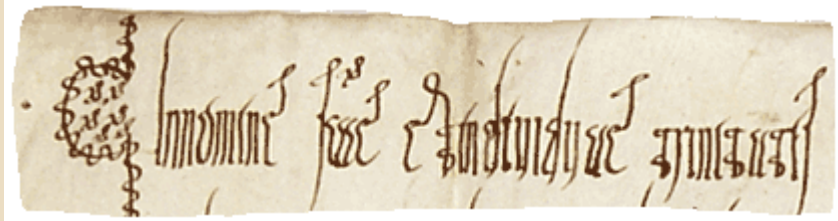 In nomine sc̄e & indiuidue trinitatis